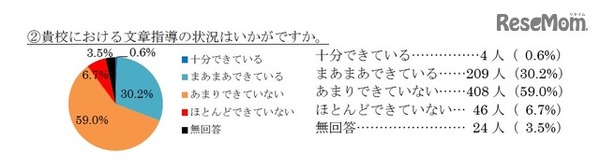 ReseMom.
②貴校における文章指導の状況はいかがですか。
3.5%
0.6%
6.7%
30.2%
59.0%
十分できている
まあまあできている
あまりできていない
ほとんどできていない
無回答
十分できている……………4人(0.6%)
まあまあできている……209人(30.2%)
あまりできていない……408人(59.0%)
ほとんどできていない… 46人(6.7%)
無回答…………………… 24人(3.5%)